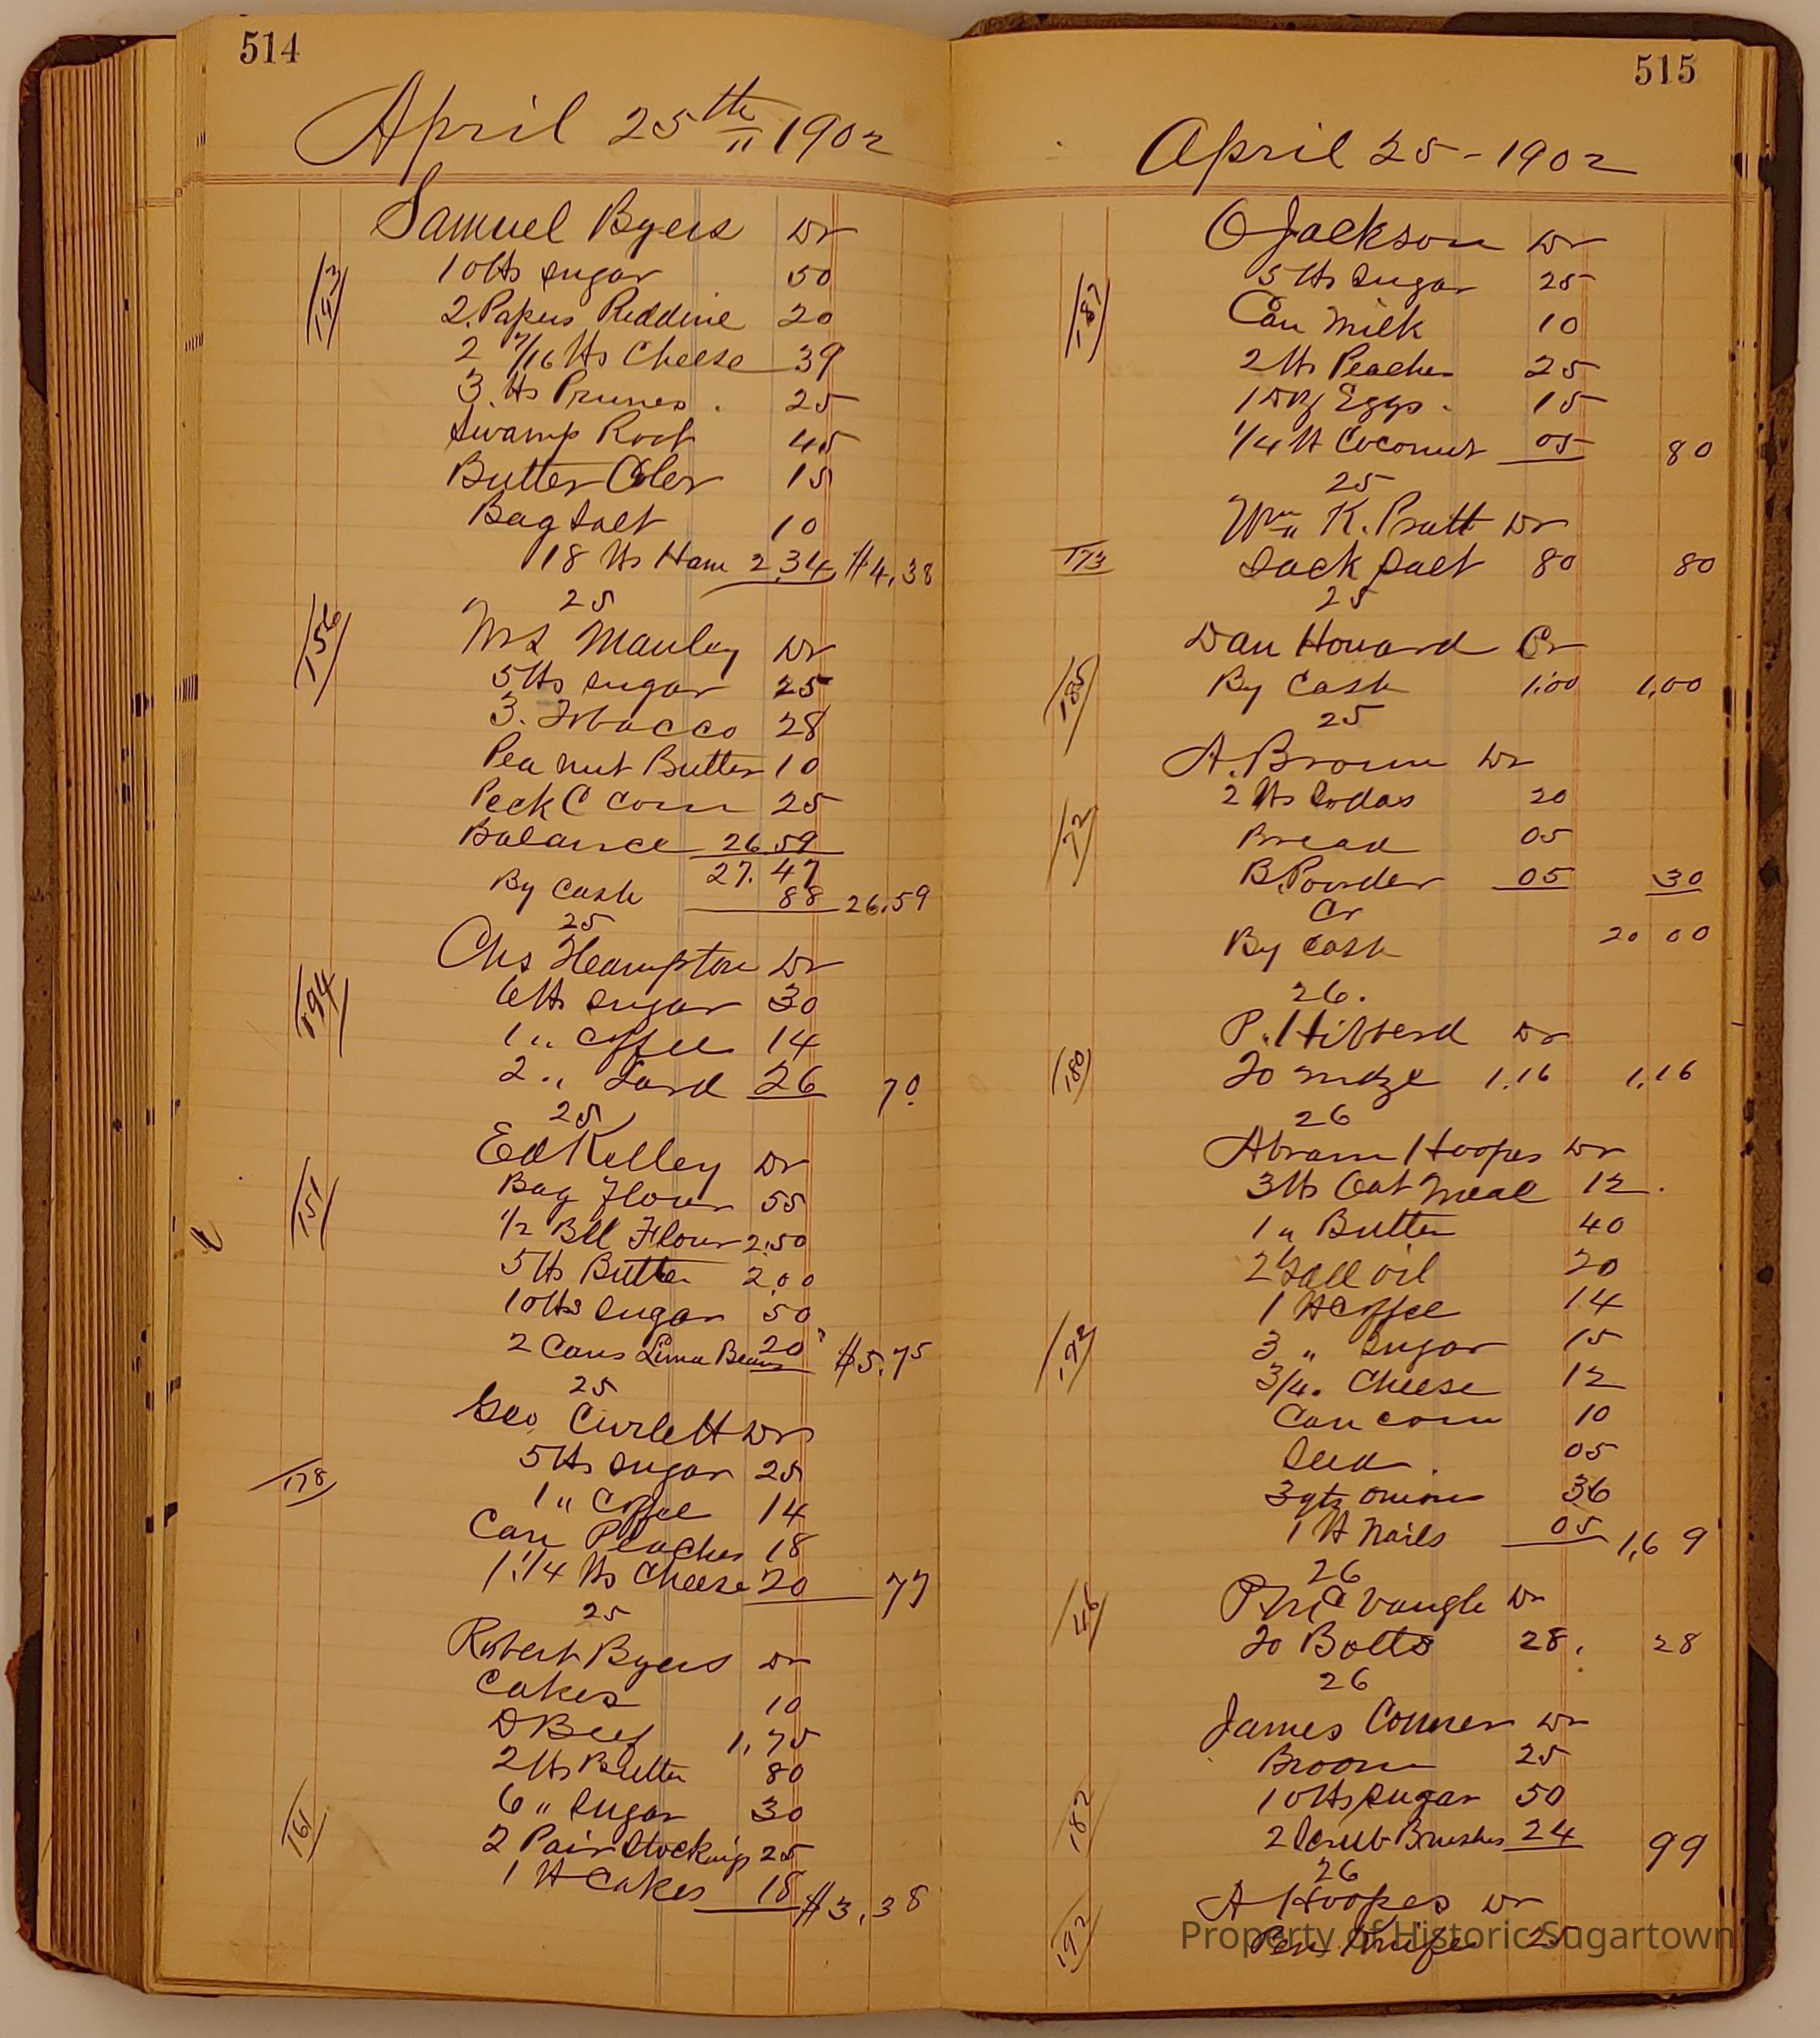 514
April 25th 1902
Samuel Byers Dr
143
10 lbs Sugar 50
2 Papers Reddine 20
2 7/16 lbs Cheese 39
3 lbs Prunes . 25
Swamp Root 45
Butter Coler 15
Bag Salt 10
18 lbs Ham 2.34 $4.38
25
156
Mrs Manley Dr
5 lbs Sugar 25
3. Tobacco 28
Pea nut Butter 10
Peck C Corn 25
Balance 26.59
27.47
By Cash 88 26.59
25
Chs Heampton Dr
194
6 lbs Sugar 30
1 " Coffee 14
2 " Lard 26 70
25
Ed Kelley Dr
151
Bag Flour 55
1/2 Bll Flour 2.50
5 lbs Butter 2.00
10 lbs Sugar 50
2 Cans Lima Beans 20 $5.75
25
Geo Curlett Dr
178
5 lbs Sugar 25
1 " Coffee 14
Can Peaches 18
1.1/4 lbs Cheese 20 77
25
Robert Byers Dr
Cakes 10
D Beef 1.75
2 lbs Butter 80
6 " Sugar 30
161
2 Pair Stockings 25
1 lb Cakes 18 $3.38
515
April 25 - 1902
O Jackson Dr
187
5 lbs Sugar 25
Can Milk 10
2 lbs Peaches 25
1 Doz Eggs . 15
1/4 lb Coconut 05 80
25
Wm K. Pratt Dr
173
Sack Salt 80 80
25
Dan Howard Cr
185
By Cash 1.00 1.00
25
A. Brown Dr
72
2 lbs Sodas 20
Bread 05
B. Powder 05 30
Cr
By Cash 20 00
26.
P. Hibberd Dr
180
To mdze 1.16 1.16
26
Abram Hoopes Dr
3 lbs Oat Meal 12.
1 " Butter 40
2 Gall oil 20
1 lb Coffee 14
192
3 " Sugar 15
3/4. Cheese 12
Can corn 10
Seed . 05
3 qts onions 36
1 lb Nails 05 1.69
26
46
P McVaugh Dr
To Bolts 28. 28
26
James Conner Dr
Broom 25
10 lbs Sugar 50
182
2 Scrub Brushes 24 99
26
A Hoopes Dr
192
Pen Knife 25
Property of Historic Sugartown